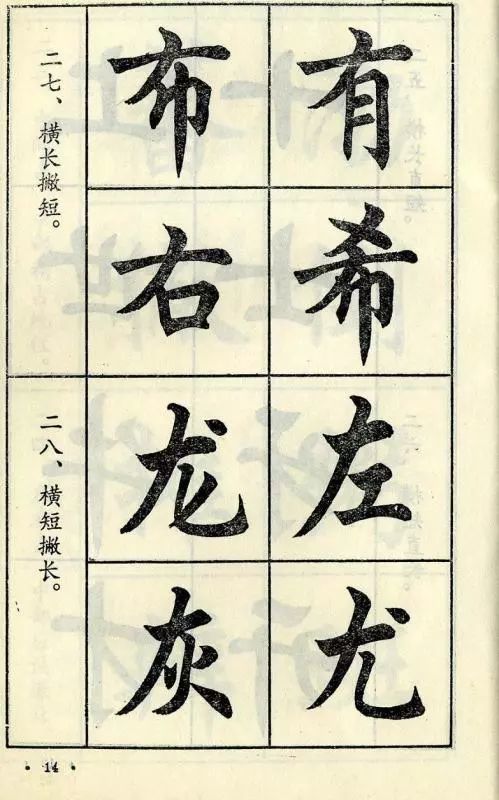 二七、横长撇短。
布 有
右 希
二八、横短撇长。
龙 左
灰 尤
· 14 ·